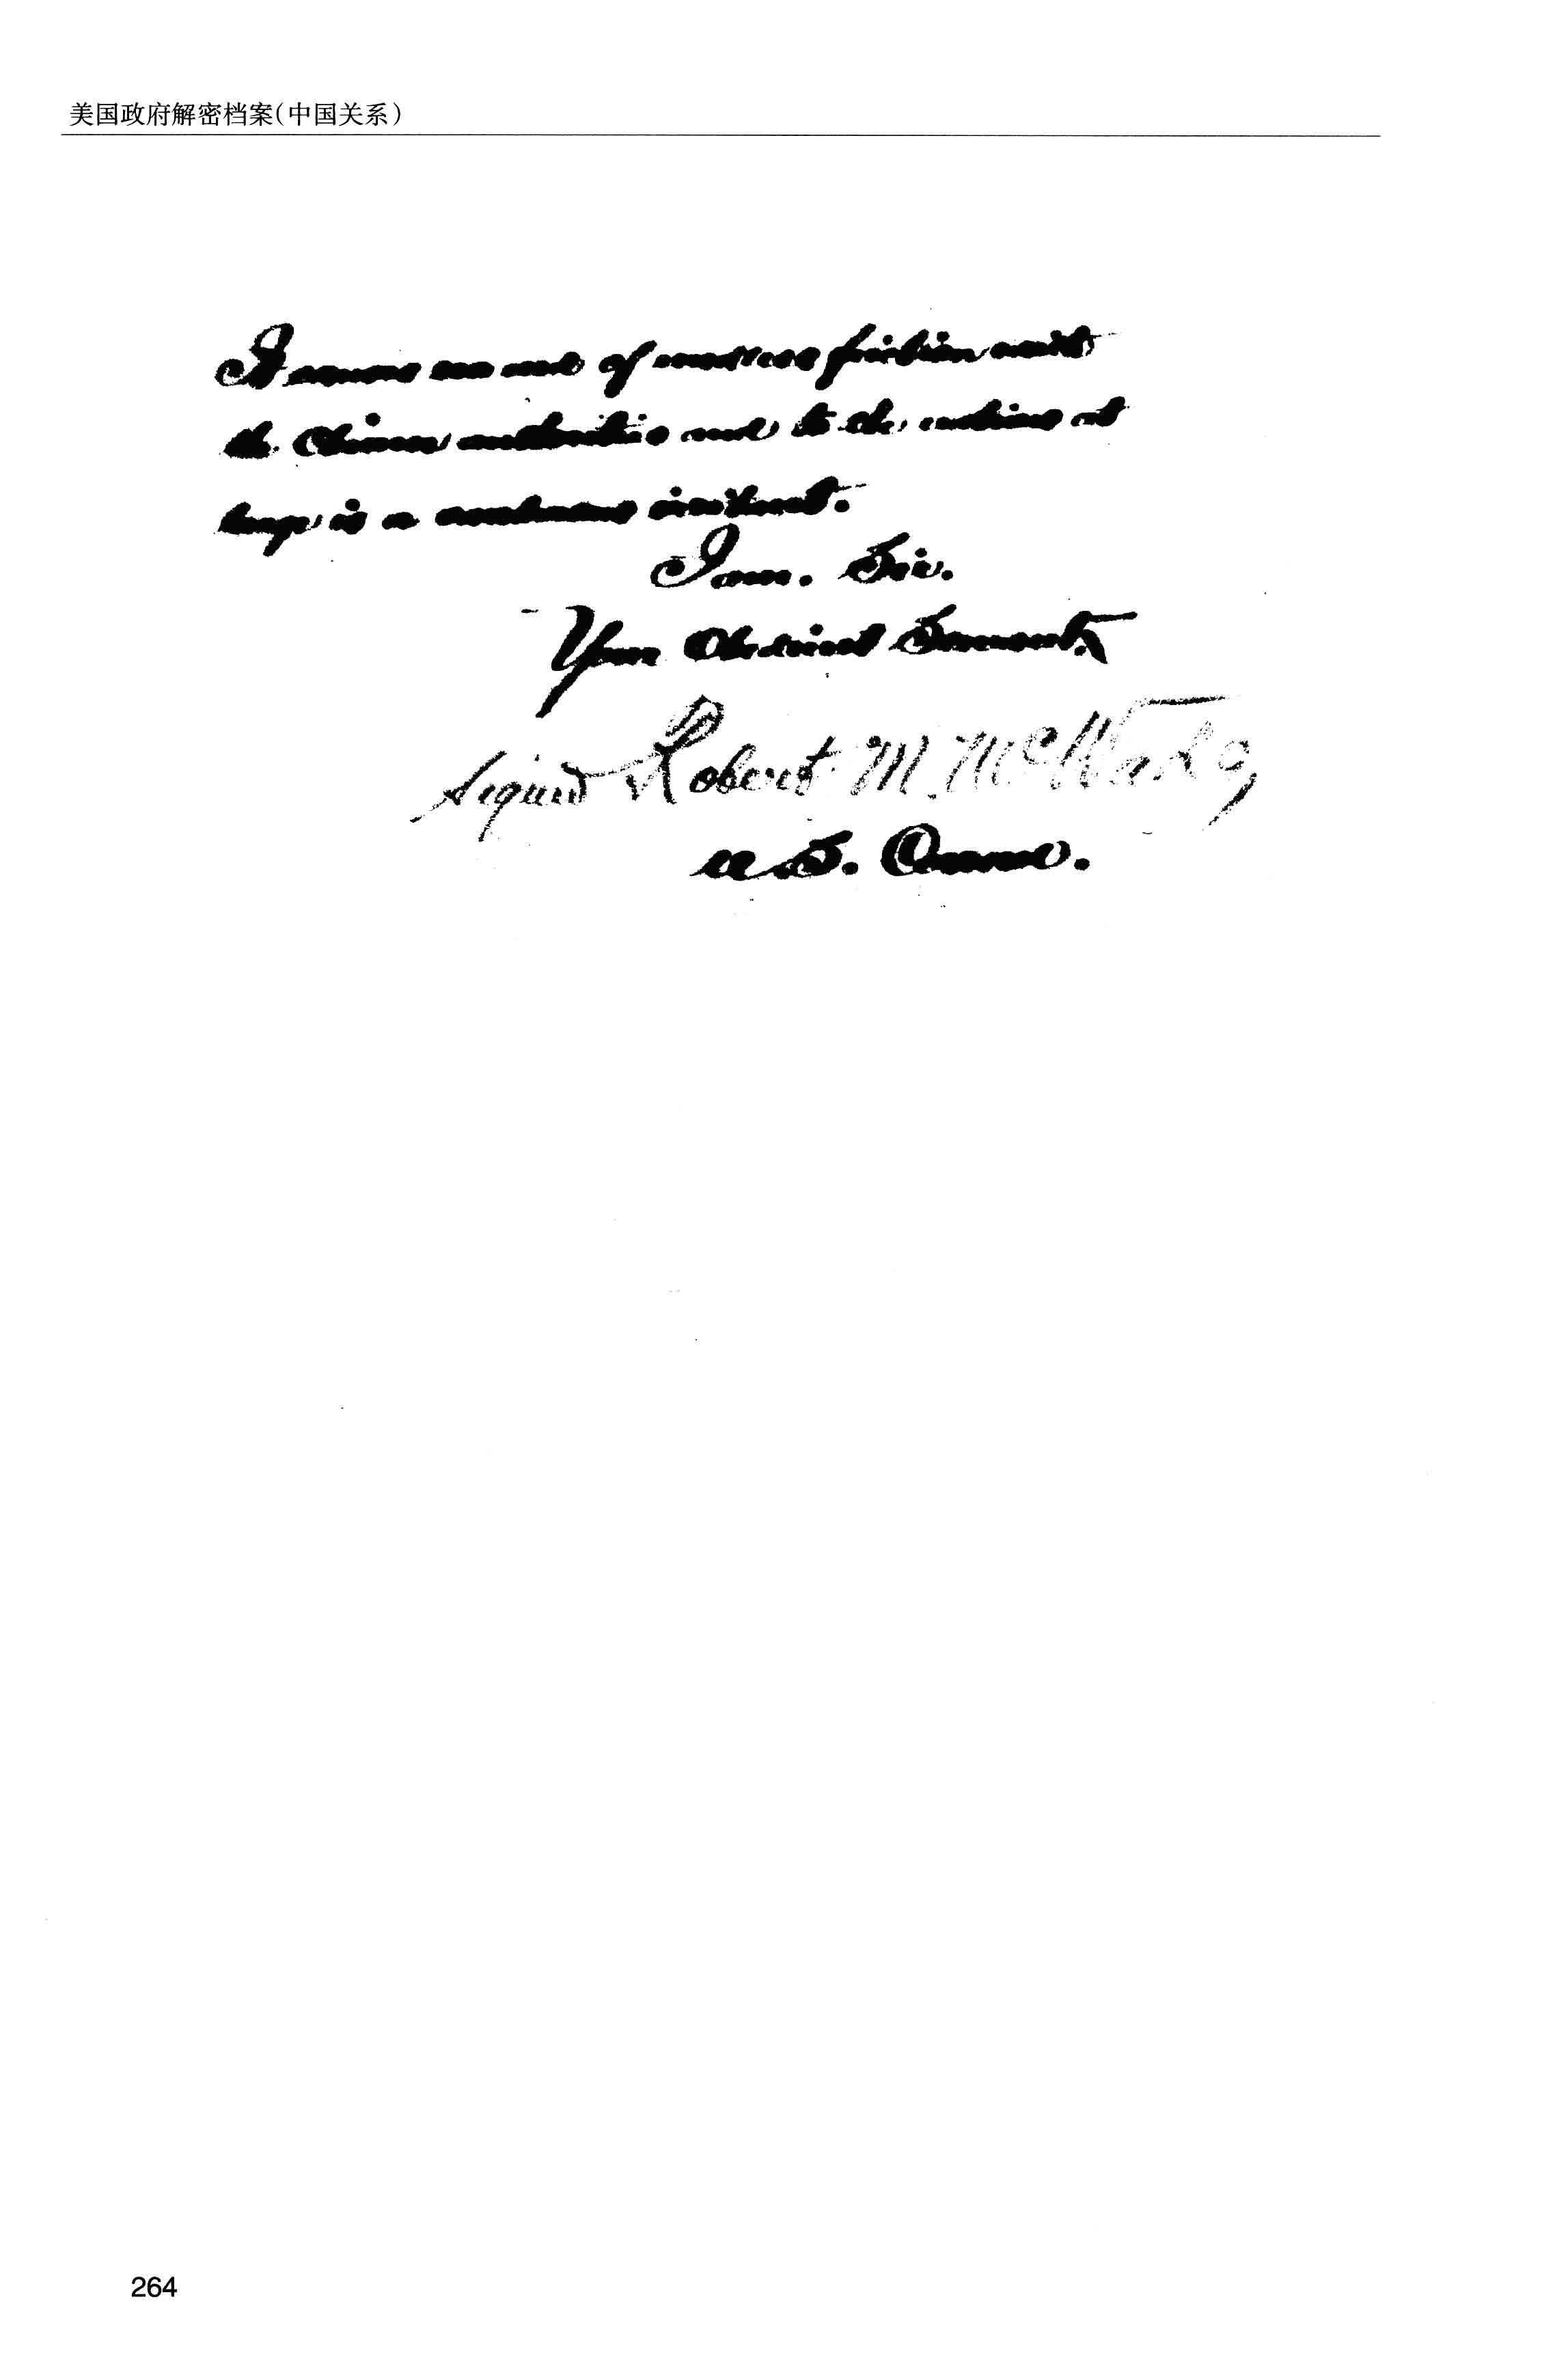 美国政府解密档案(中国关系)
of endless friction with
the Chinese authorities and to the nations at
large is a
I am. Sir.
Your Obedient Servant,
Signed Robert M. McWade,
U.S. Consul.
264